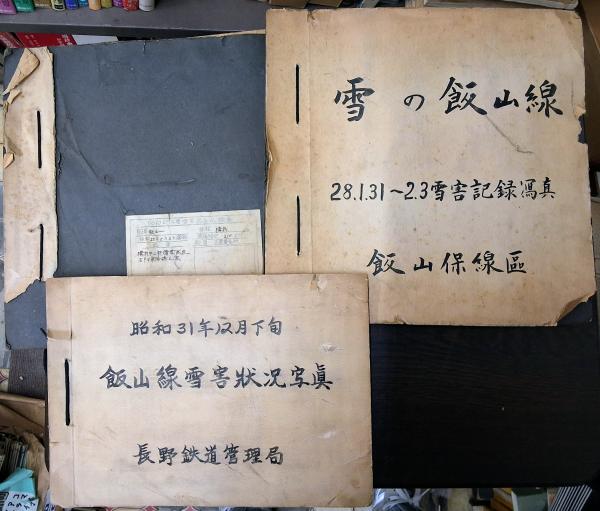 雪の飯山線
28.1.31～2.3雪害記録寫真
飯山保線區
昭和31年12月下旬
飯山線雪害狀況写眞
長野鉄道管理局